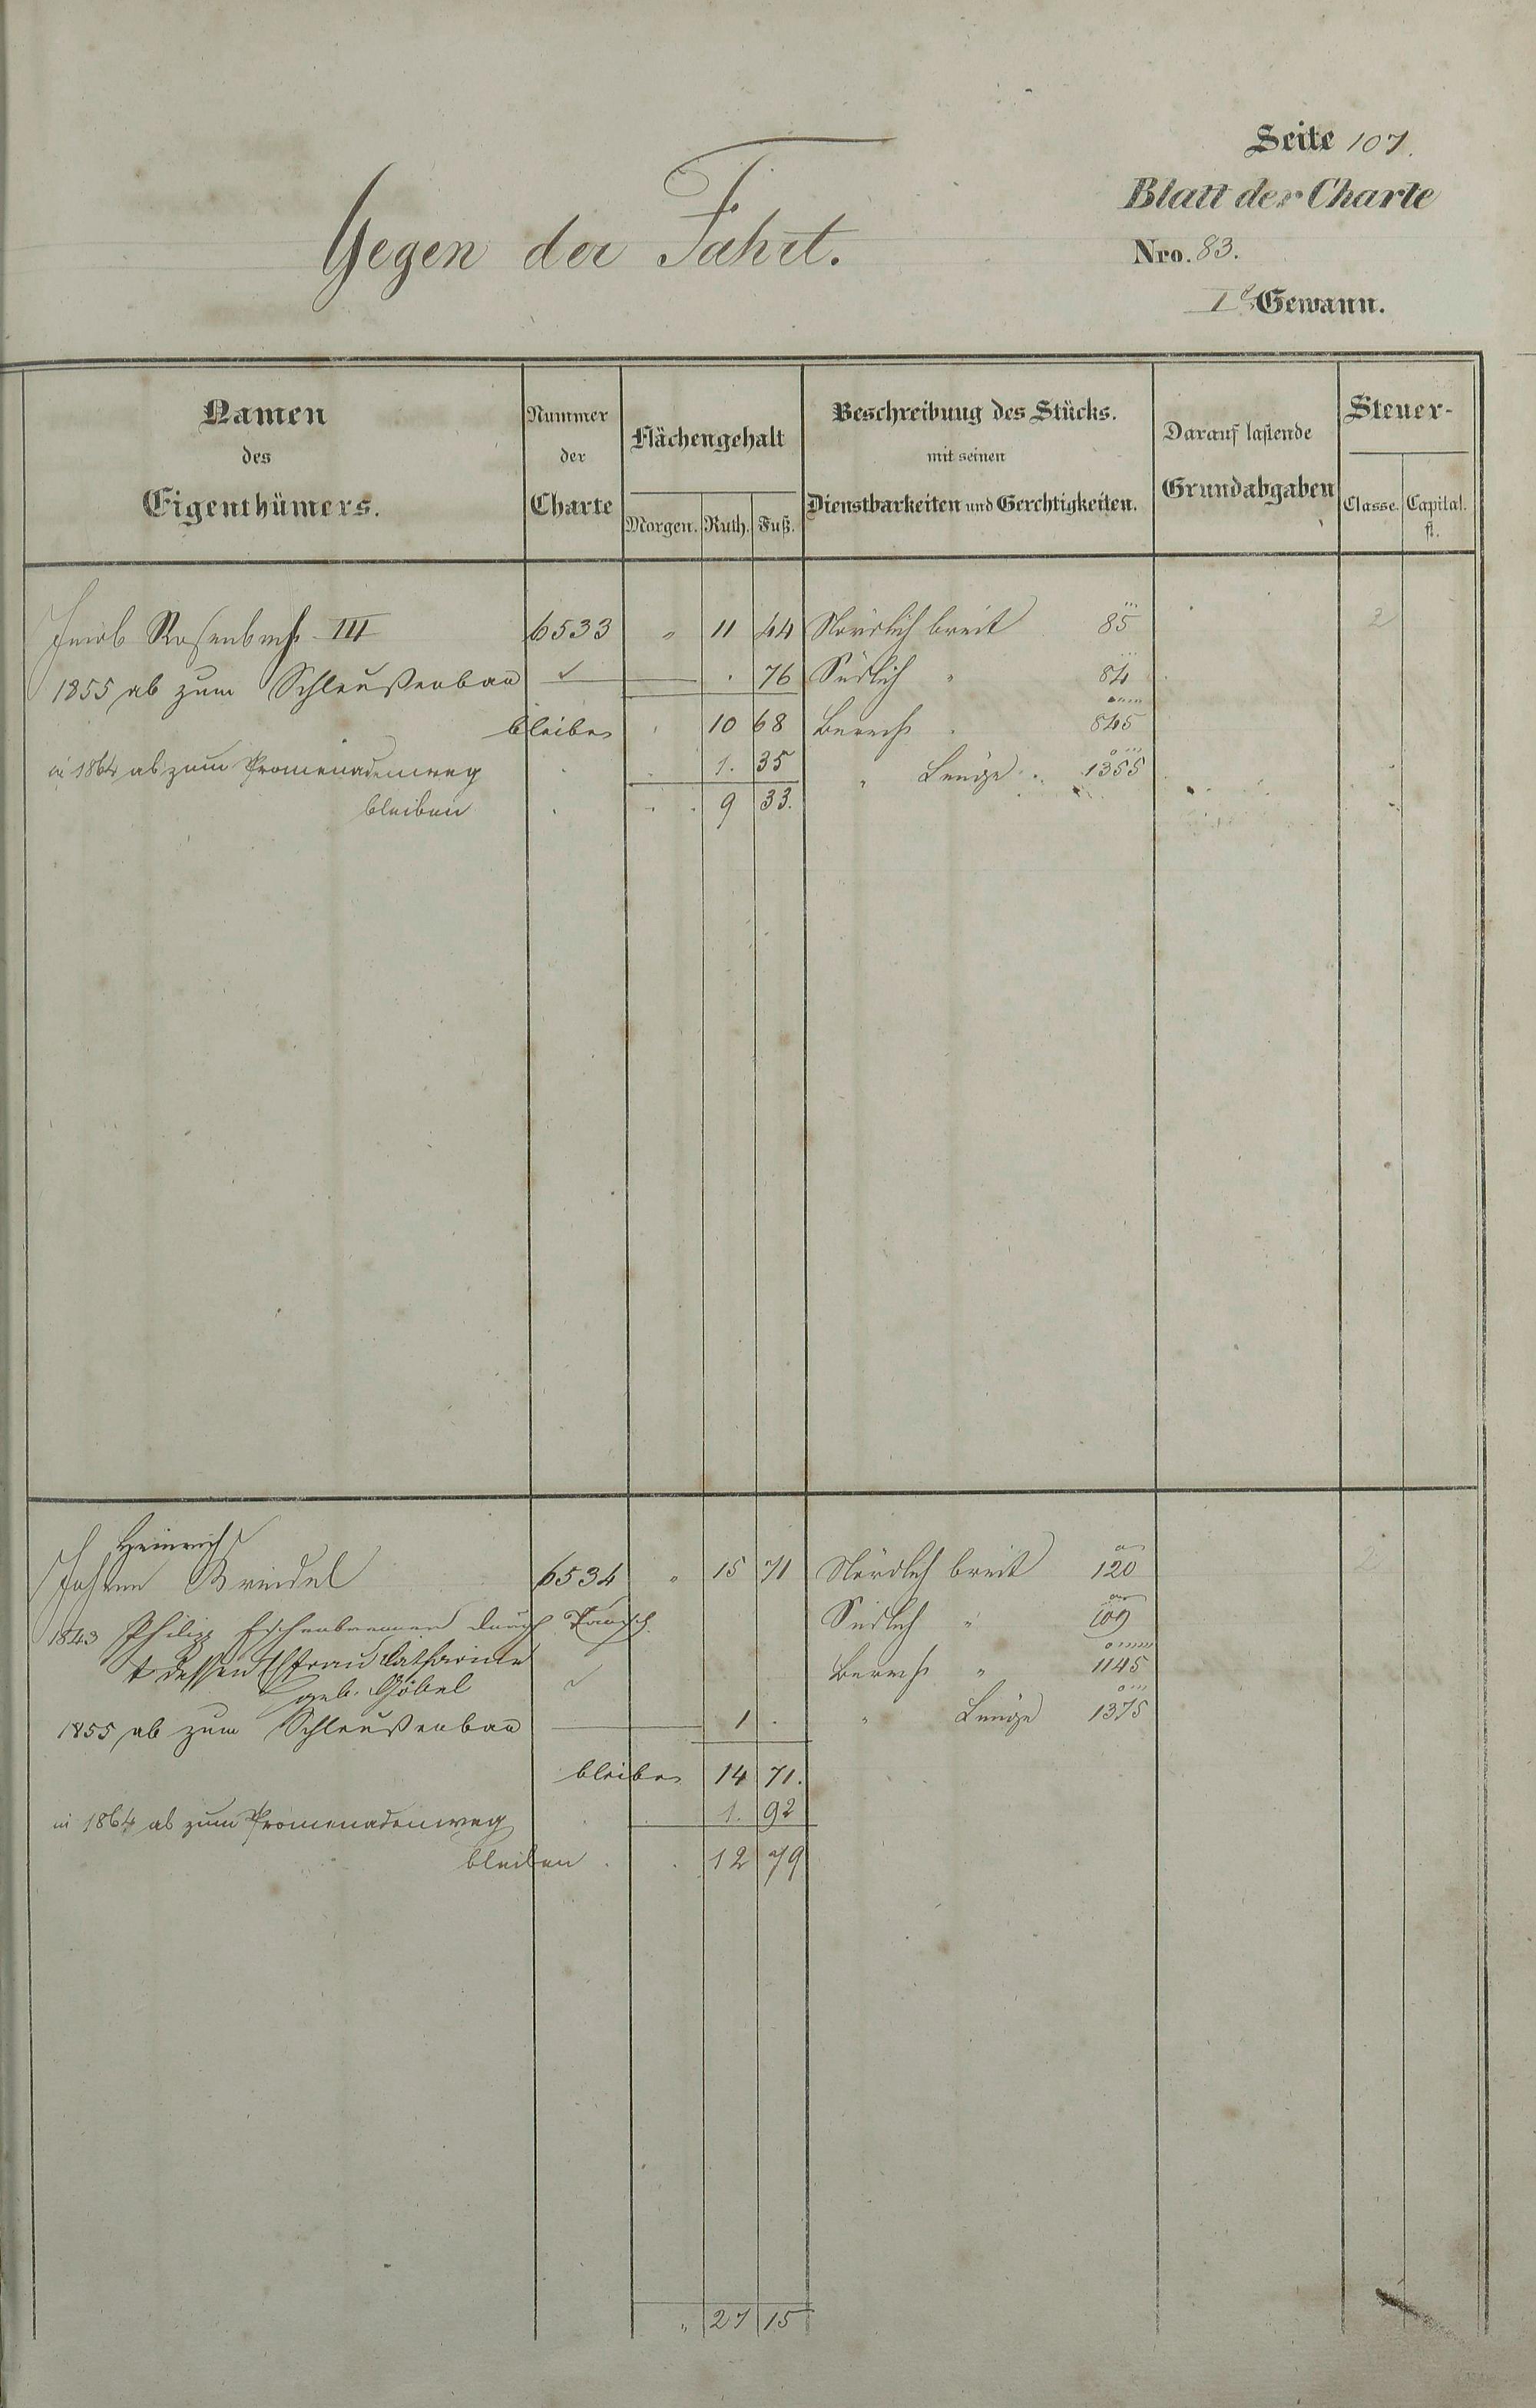 Seite 107.
Blatt der Charte
Gegen der Fahrt.
Nro. 83.
I. Gewann.
Namen des Eigenthümers.
Nummer der Charte
Flächengehalt
Morgen. Ruth. Fuß.
Beschreibung des Stücks. mit seinen Dienstbarkeiten und Gerechtigkeiten.
Darauf lastende Grundabgaben
Steuer-
Classe. Capital. fl.
Jacob Rosenbach III 6533 " 11 44 Nördlich breit 85 2
1855 ab zum Schleußenbau . 76 Südlich " 84
bleiben 10 68 Berech. 845
in 1864 ab zum Promenadenweg 1. 35 " Länge 1355
bleiben 9 33.
Heinrich
Johann Breidel 6534 " 15 71 Nördlich breit 120 2
1843 Philipp durch Tausch. Südlich " 109
& dessen Ehfrau Catharine Berech. " 1145
geb. Göbel
1855 ab zum Schleußenbau 1 . " Länge 1375
bleiben 14 71.
in 1864 ab zum Promenadenweg 1. 92
bleiben 12 79
" 27 15